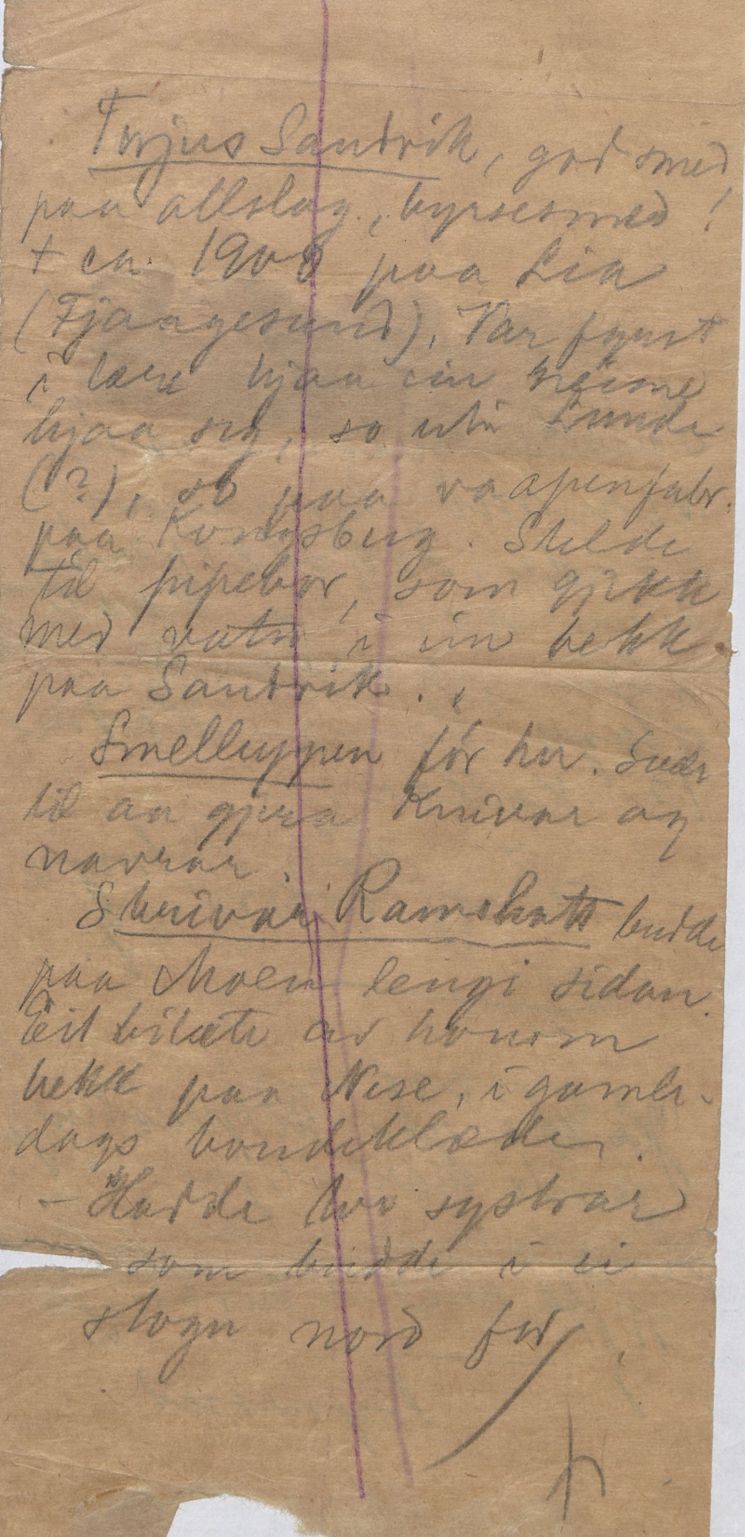 Terjus Sandvik, god smed
paa allslag, byrsesmed!
+ ca. 1900 paa Lia
(Fjaagesund), Var fyrst
i lære hjaa ein heime
hjaa seg, so uti Lunde
(?), so paa vaapenfabr.
paa Kongsberg. Stelde
til pipebor, som gjekk
med vatn i ein bekk
paa Sandvik.
Smelluppen fór her. Svær
til aa gjera Knivar og
navrar.
Skrivar Ramshatt budde
paa Moen lengi sidan.
Eit bilæte av honom
hekk paa Nese, i gamle-
dags bondeklæde.
- Hadde two systrar
som budde i ei
stogu nord for